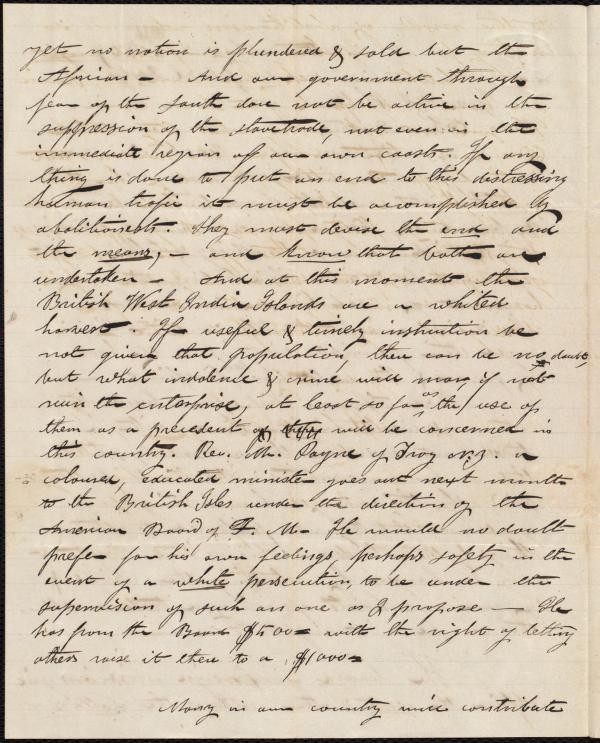 yet no nation is plundered & sold but the
African — And our government through
fear of the South dare not be active in the
suppression of the slavetrade, not even in the
immediate region off our own coasts. If any
thing is done to put an end to this distressing
human trafic it must be accomplished by
abolitionists. They must devise the end and
the means, — and know that both are
undertaken — And at this moment the
British West India Islands are a whited
harvest. If useful & timely instruction be
not given that population, there can be no doubt,
but what indolence & crime will mar if not
ruin the enterprise, at least so far as the use of
them as a precedent will be concerned in
this country. Rev. Mr. Payne of Troy N.Y. a
coloured, educated minister goes out next month
to the British Isles under the direction of the
American Board of F. M. He would no doubt
prefer for his own feelings, perhaps safety in the
event of a white persecution, to be under the
supervision of such an one as I propose — He
has from the Board $500= with the right of letting
others raise it there to a $1000=
Many in our country will contribute